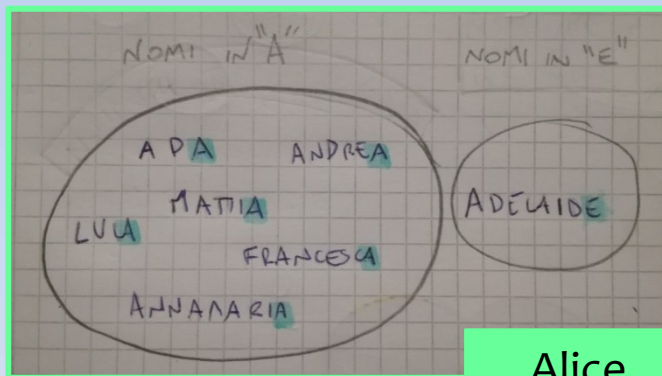 NOMI IN "A"
NOMI IN "E"
ADA
ANDREA
MATTIA
LUCA
FRANCESCA
ANNAMARIA
ADELAIDE
Alice